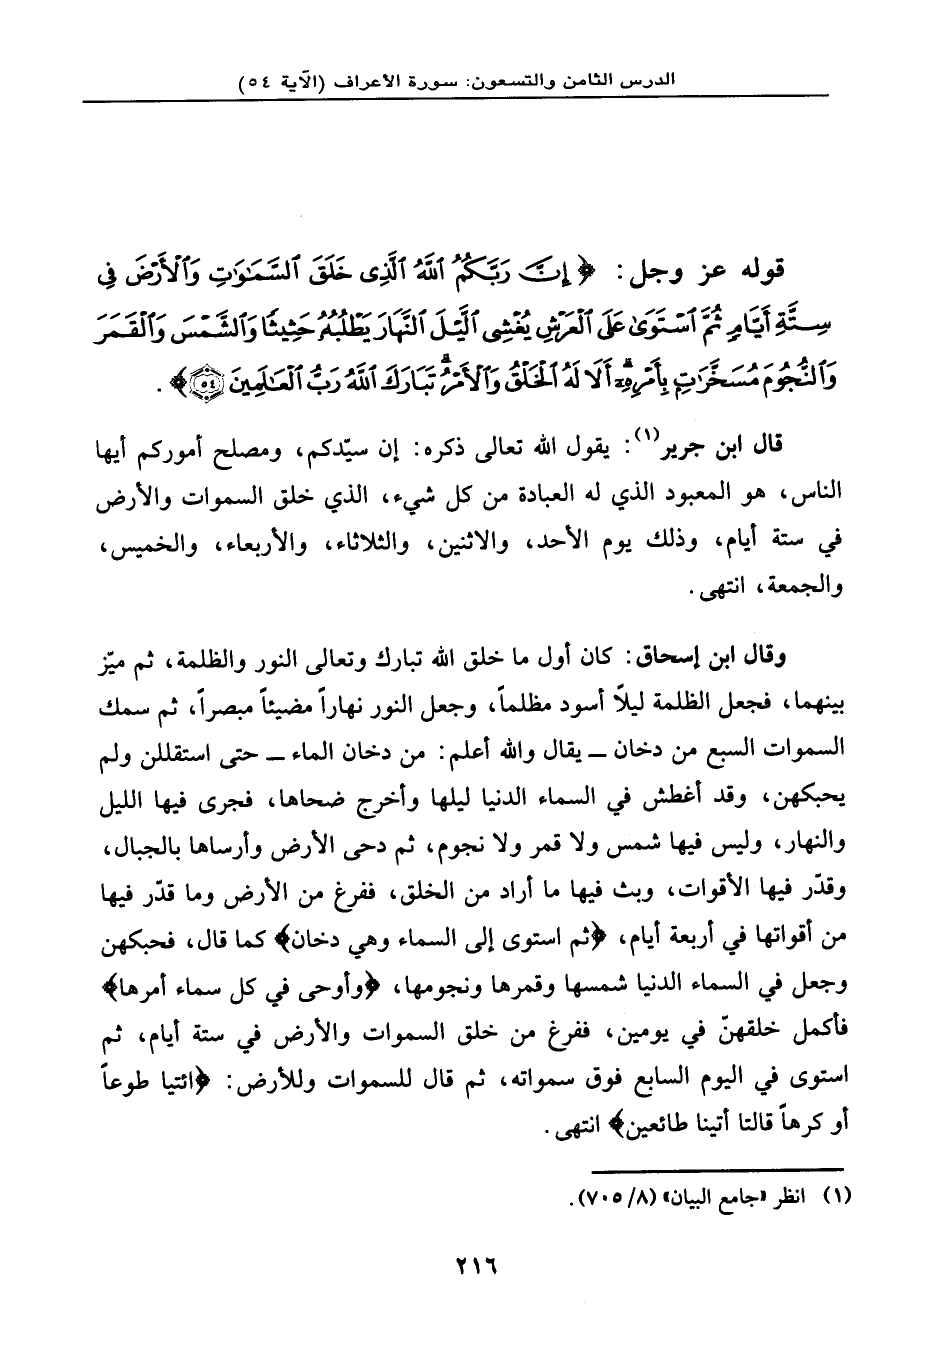 الدرس الثامن والتسعون: سورة الأعراف (الآية ٥٤)
قوله عز وجل: ﴿إِنَّ رَبَّكُمُ ٱللَّهُ ٱلَّذِى خَلَقَ ٱلسَّمَٰوَٰتِ وَٱلْأَرْضَ فِى
سِتَّةِ أَيَّامٍ ثُمَّ ٱسْتَوَىٰ عَلَى ٱلْعَرْشِ يُغْشِى ٱلَّيْلَ ٱلنَّهَارَ يَطْلُبُهُۥ حَثِيثًا وَٱلشَّمْسَ وَٱلْقَمَرَ
وَٱلنُّجُومَ مُسَخَّرَٰتٍۭ بِأَمْرِهِۦٓ ۗ أَلَا لَهُ ٱلْخَلْقُ وَٱلْأَمْرُ ۗ تَبَارَكَ ٱللَّهُ رَبُّ ٱلْعَٰلَمِينَ ٥٤﴾.
قال ابن جرير(١): يقول الله تعالى ذكره: إن سيّدكم، ومصلح أموركم أيها
الناس، هو المعبود الذي له العبادة من كل شيء، الذي خلق السموات والأرض
في ستة أيام، وذلك يوم الأحد، والاثنين، والثلاثاء، والأربعاء، والخميس،
والجمعة، انتهى.
وقال ابن إسحاق: كان أول ما خلق الله تبارك وتعالى النور والظلمة، ثم ميّز
بينهما، فجعل الظلمة ليلاً أسود مظلماً، وجعل النور نهاراً مضيئاً مبصراً، ثم سمك
السموات السبع من دخان ــ يقال والله أعلم: من دخان الماء ــ حتى استقللن ولم
يحبكهن، وقد أغطش في السماء الدنيا ليلها وأخرج ضحاها، فجرى فيها الليل
والنهار، وليس فيها شمس ولا قمر ولا نجوم، ثم دحى الأرض وأرساها بالجبال،
وقدّر فيها الأقوات، وبث فيها ما أراد من الخلق، ففرغ من الأرض وما قدّر فيها
من أقواتها في أربعة أيام، ﴿ثم استوى إلى السماء وهي دخان﴾ كما قال، فحبكهن
وجعل في السماء الدنيا شمسها وقمرها ونجومها، ﴿وأوحى في كل سماء أمرها﴾
فأكمل خلقهنّ في يومين، ففرغ من خلق السموات والأرض في ستة أيام، ثم
استوى في اليوم السابع فوق سمواته، ثم قال للسموات وللأرض: ﴿ائتيا طوعاً
أو كرهاً قالتا أتينا طائعين﴾ انتهى.
(١) انظر «جامع البيان» (٧٠٥/٨).
٢١٦